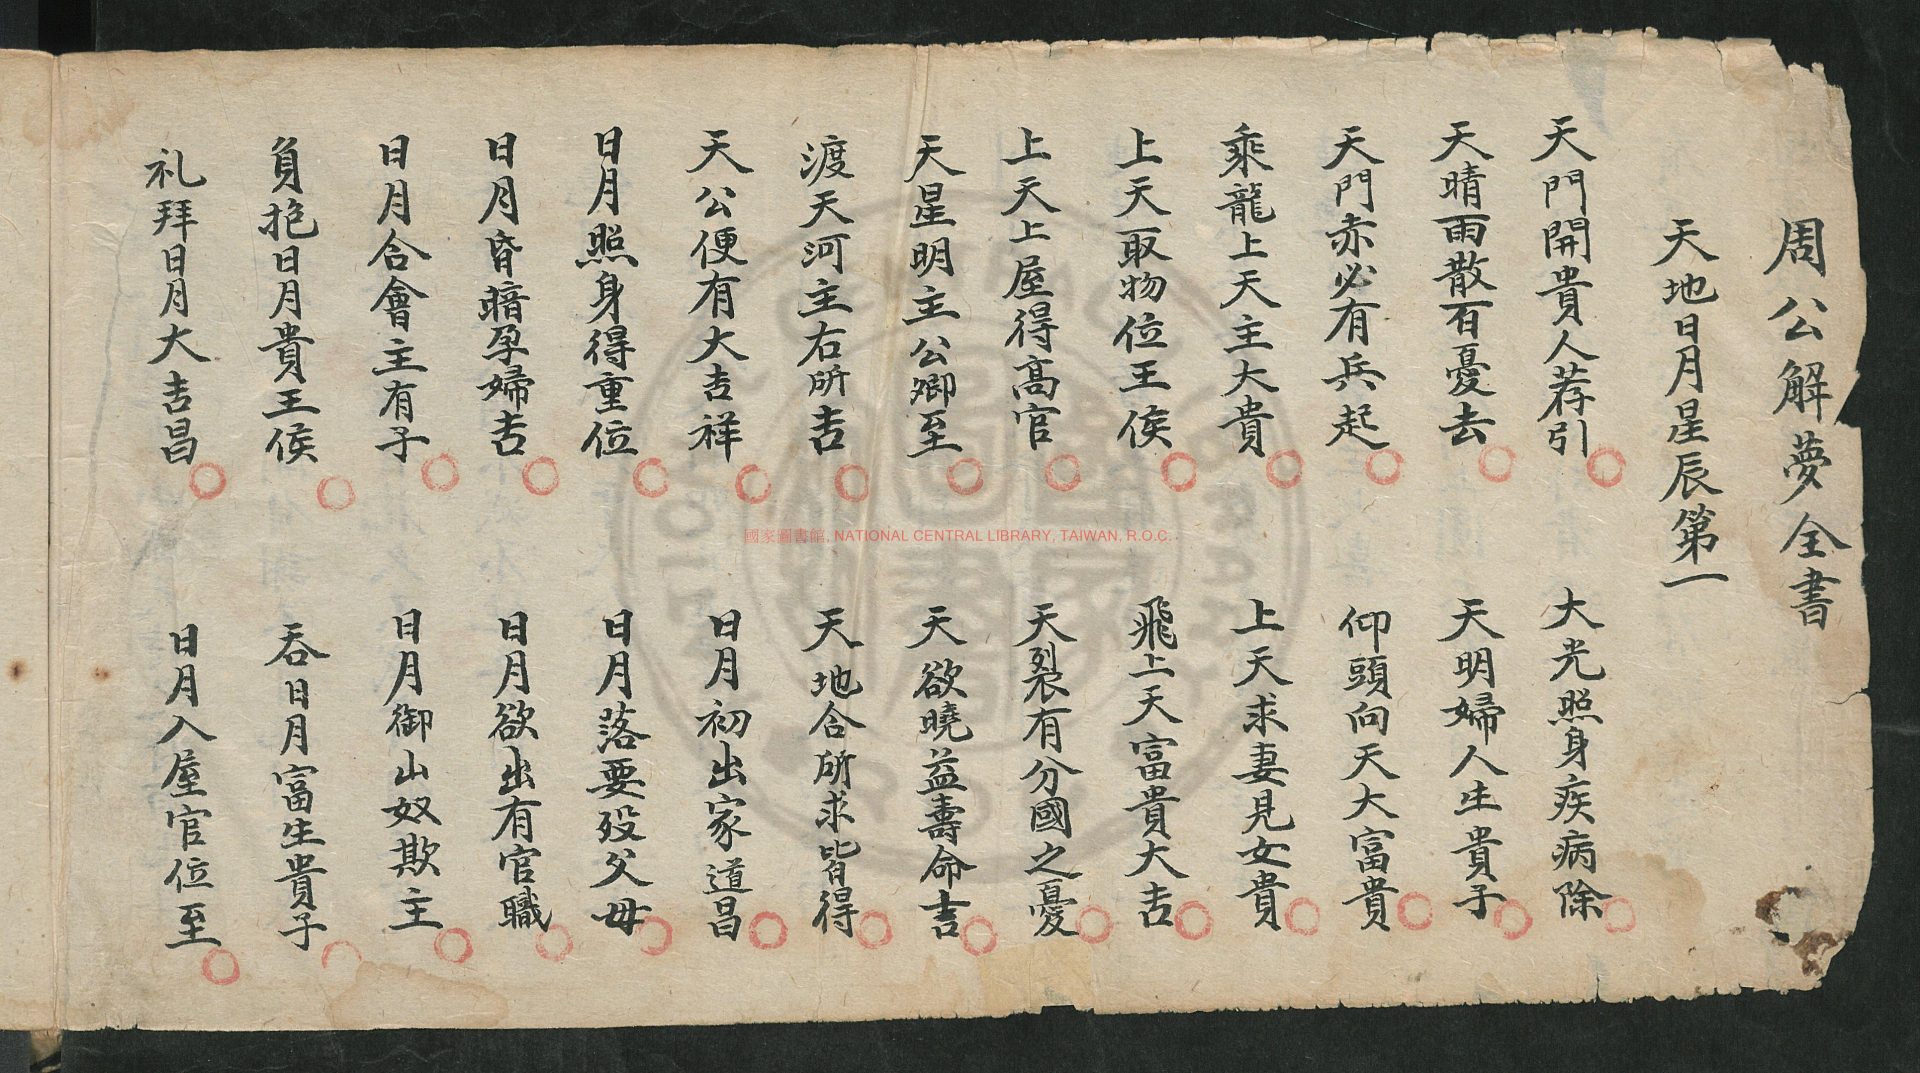 周公解夢全書
天地日月星辰第一
天門開貴人荐引　大光照身疾病除
天晴雨散百憂去　天明婦人生貴子
天門赤必有兵起　仰頭向天大富貴
乘龍上天主大貴　上天求妻見女貴
上天取物位王侯　飛上天富貴大吉
上天上屋得高官　天裂有分國之憂
天星明主公卿至　天欲曉益壽命吉
渡天河主右所吉　天地合所求皆得
天公便有大吉祥　日月初出家道昌
日月照身得重位　日月落要歿父母
日月昏暗孕婦吉　日月欲出有官職
日月合會主有子　日月御山奴欺主
負抱日月貴王侯　吞日月富生貴子
礼拜日月大吉昌　日月入屋官位至
國家圖書館, NATIONAL CENTRAL LIBRARY, TAIWAN, R.O.C.